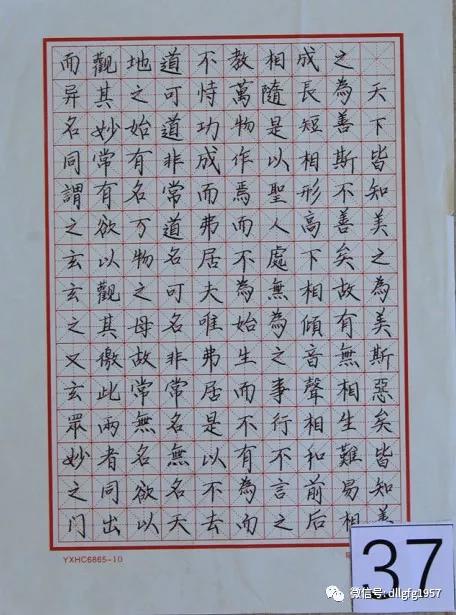 天下皆知美之為美斯惡矣皆知
之為善斯不善矣故有無相生難易相
成長短相形高下相傾音聲相和前后
相隨是以聖人處無為之事行不言之
教萬物作焉而不為始生而不有為而
不恃功成而弗居夫唯弗居是以不去
道可道非常道名可名非常名無名天
地之始有名万物之母故常無名欲以
觀其妙常有欲以觀其徼此兩者同出
而异名同謂之玄玄之又玄眾妙之门
YXHC6865-10
37
微信号: dllgfg1957